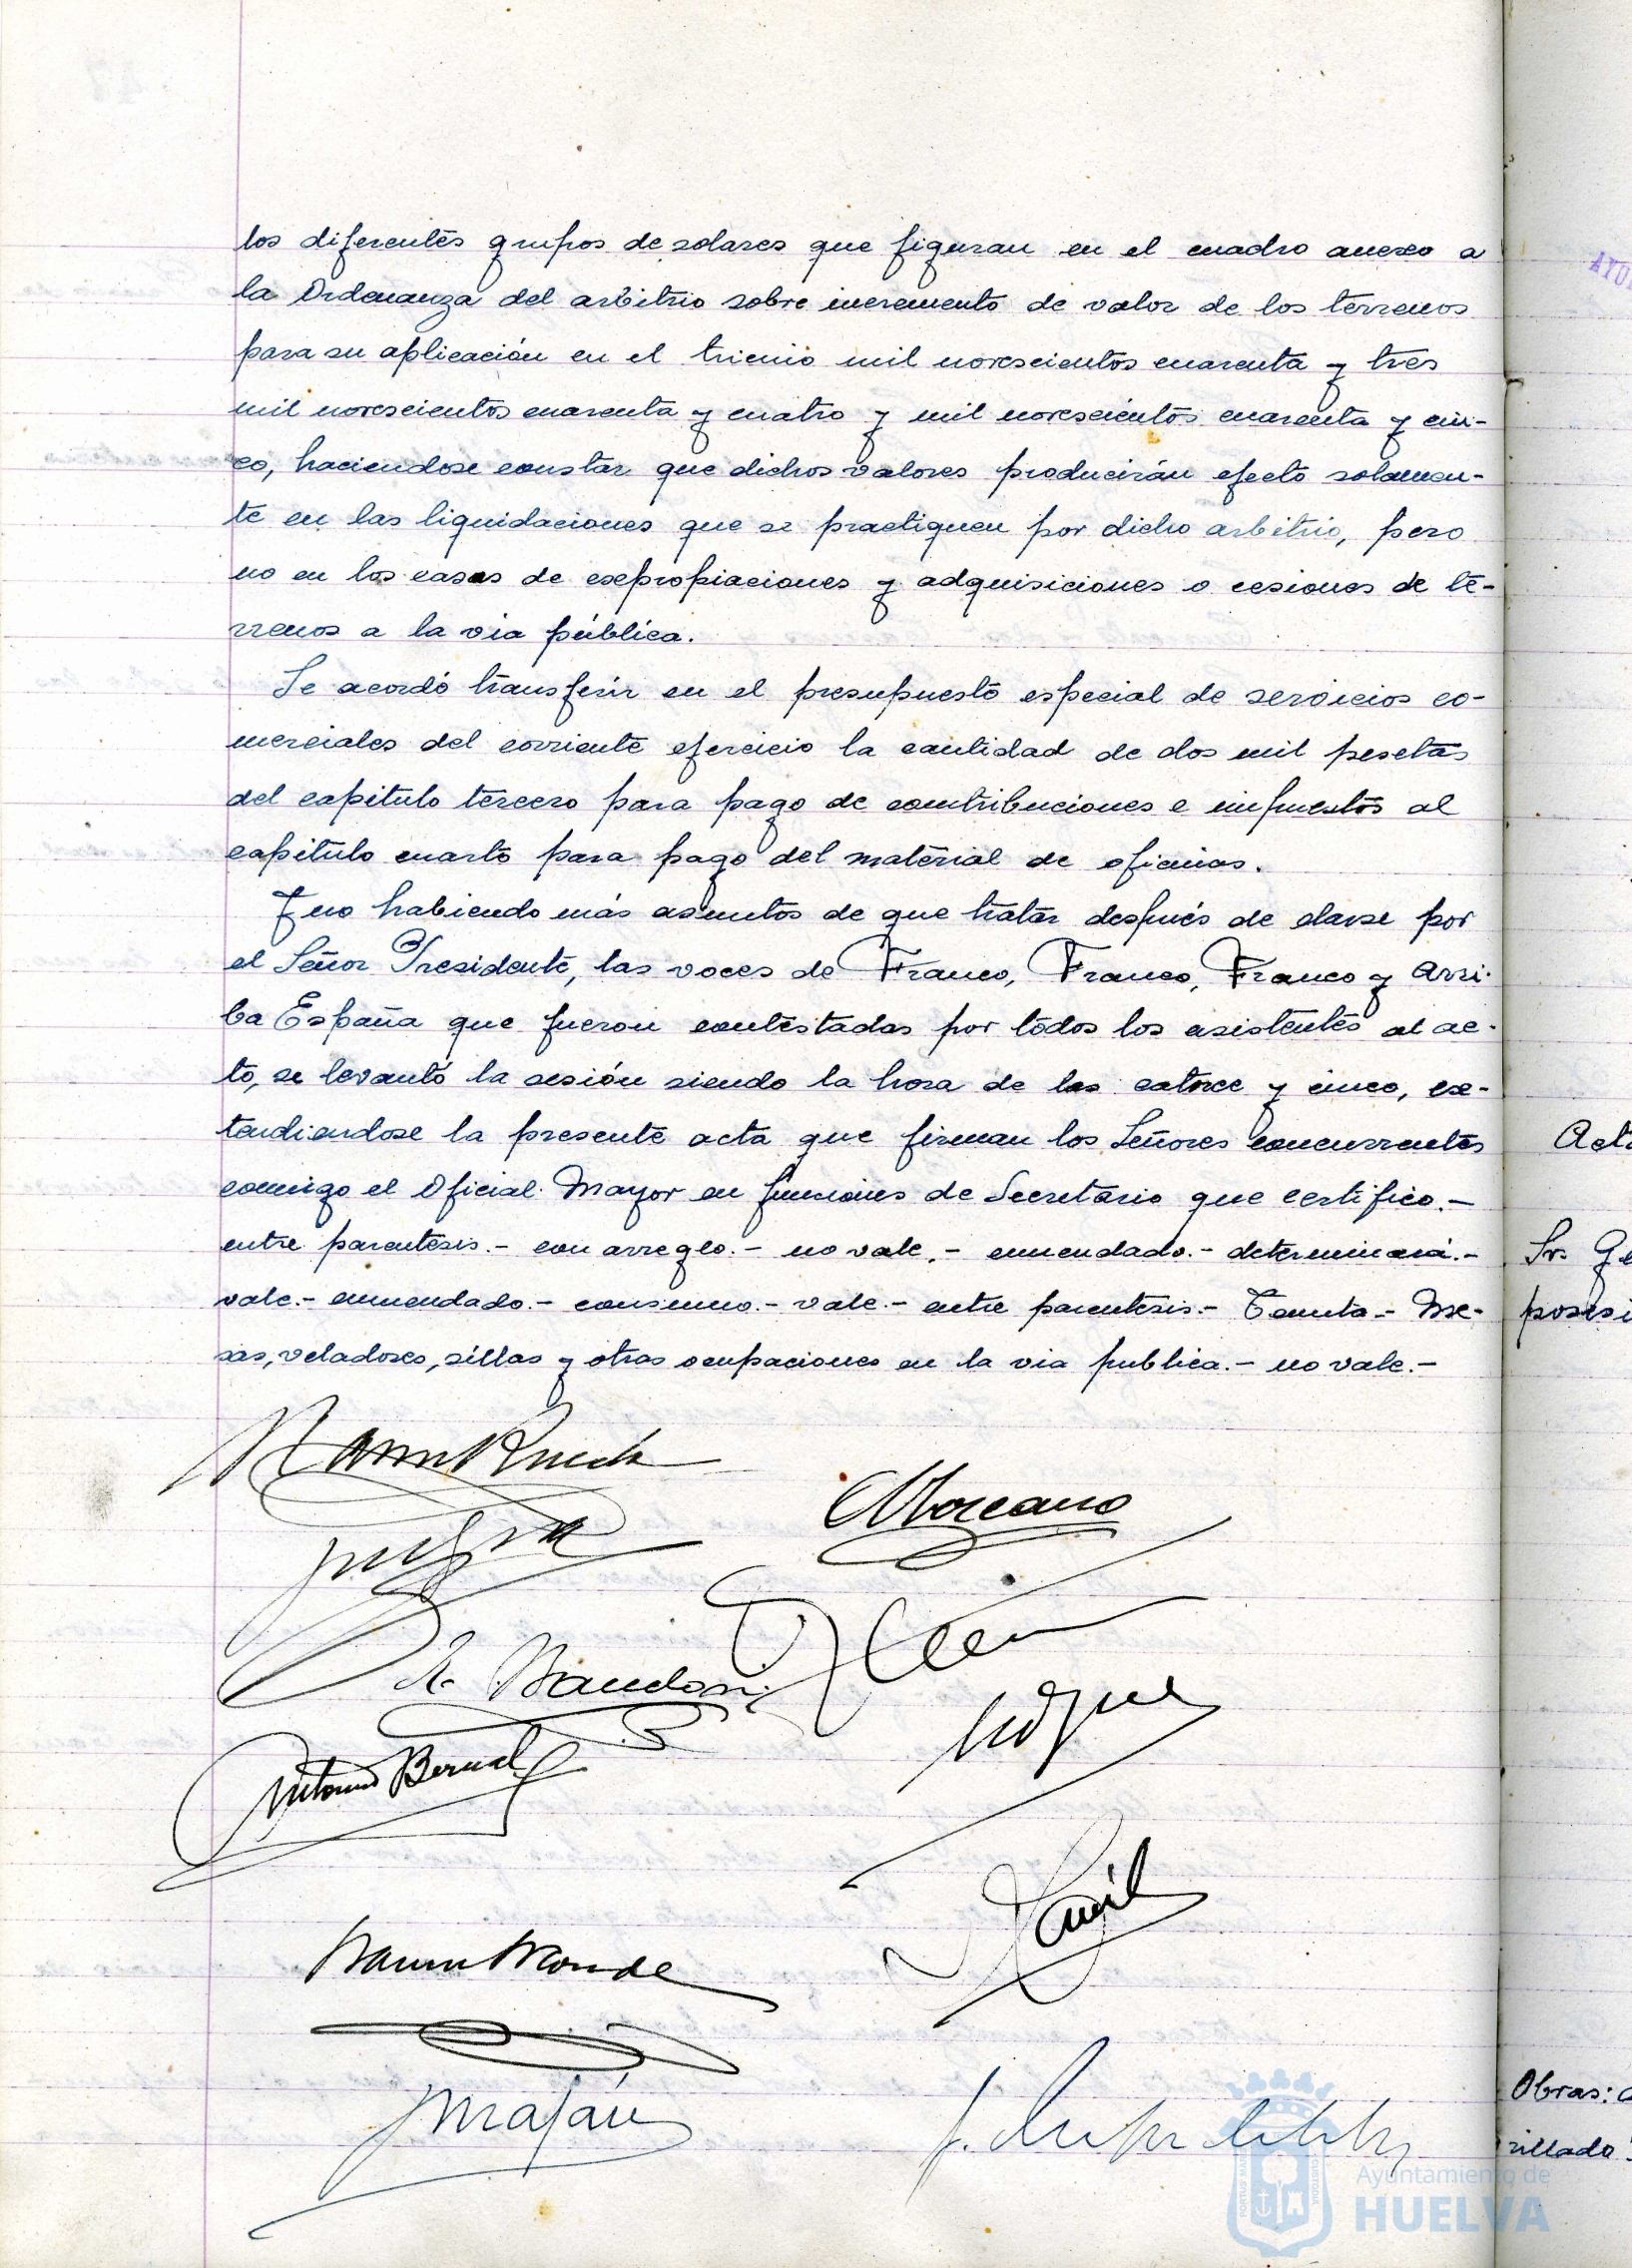 los diferentes grupos de solares que figuran en el cuadro anexo a
la Ordenanza del arbitrio sobre incremento de valor de los terrenos
para su aplicación en el trienio mil novescientos cuarenta y tres
mil novescientos cuarenta y cuatro y mil novescientos cuarenta y cin-
co, haciendose constar que dichos valores producirán efecto solamen-
te en las liquidaciones que se practiquen por dicho arbitrio, pero
no en los casos de expropiaciones y adquisiciones o cesiones de te-
rrenos a la via pública.
Se acordó transferir en el presupuesto especial de servicios co-
merciales del corriente ejercicio la cantidad de dos mil pesetas
del capitulo tercero para pago de contribuciones e impuestos al
capitulo cuarto para pago del material de oficinas.
Y no habiendo más asuntos de que tratar después de darse por
el Señor Presidente, las voces de Franco, Franco, Franco y Arri-
ba España que fueron contestadas por todos los asistentes al ac-
to, se levantó la sesión siendo la hora de las catorce y cinco, ex-
tendiendose la presente acta que firman los Señores concurrentes
conmigo el Oficial Mayor en funciones de Secretario que certifico.-
entre parentesis.- con arreglo.- no vale.- enmendado.- determinará.-
vale.- enmendado.- consumo.- vale.- entre parentesis.- Me-
sas, veladores, sillas y otras ocupaciones en la via publica.- no vale.-
Moreano
Antonio Bernal
Act
Sr. Ge
posesi
Obras:
rillado
Ayuntamiento de
HUELVA